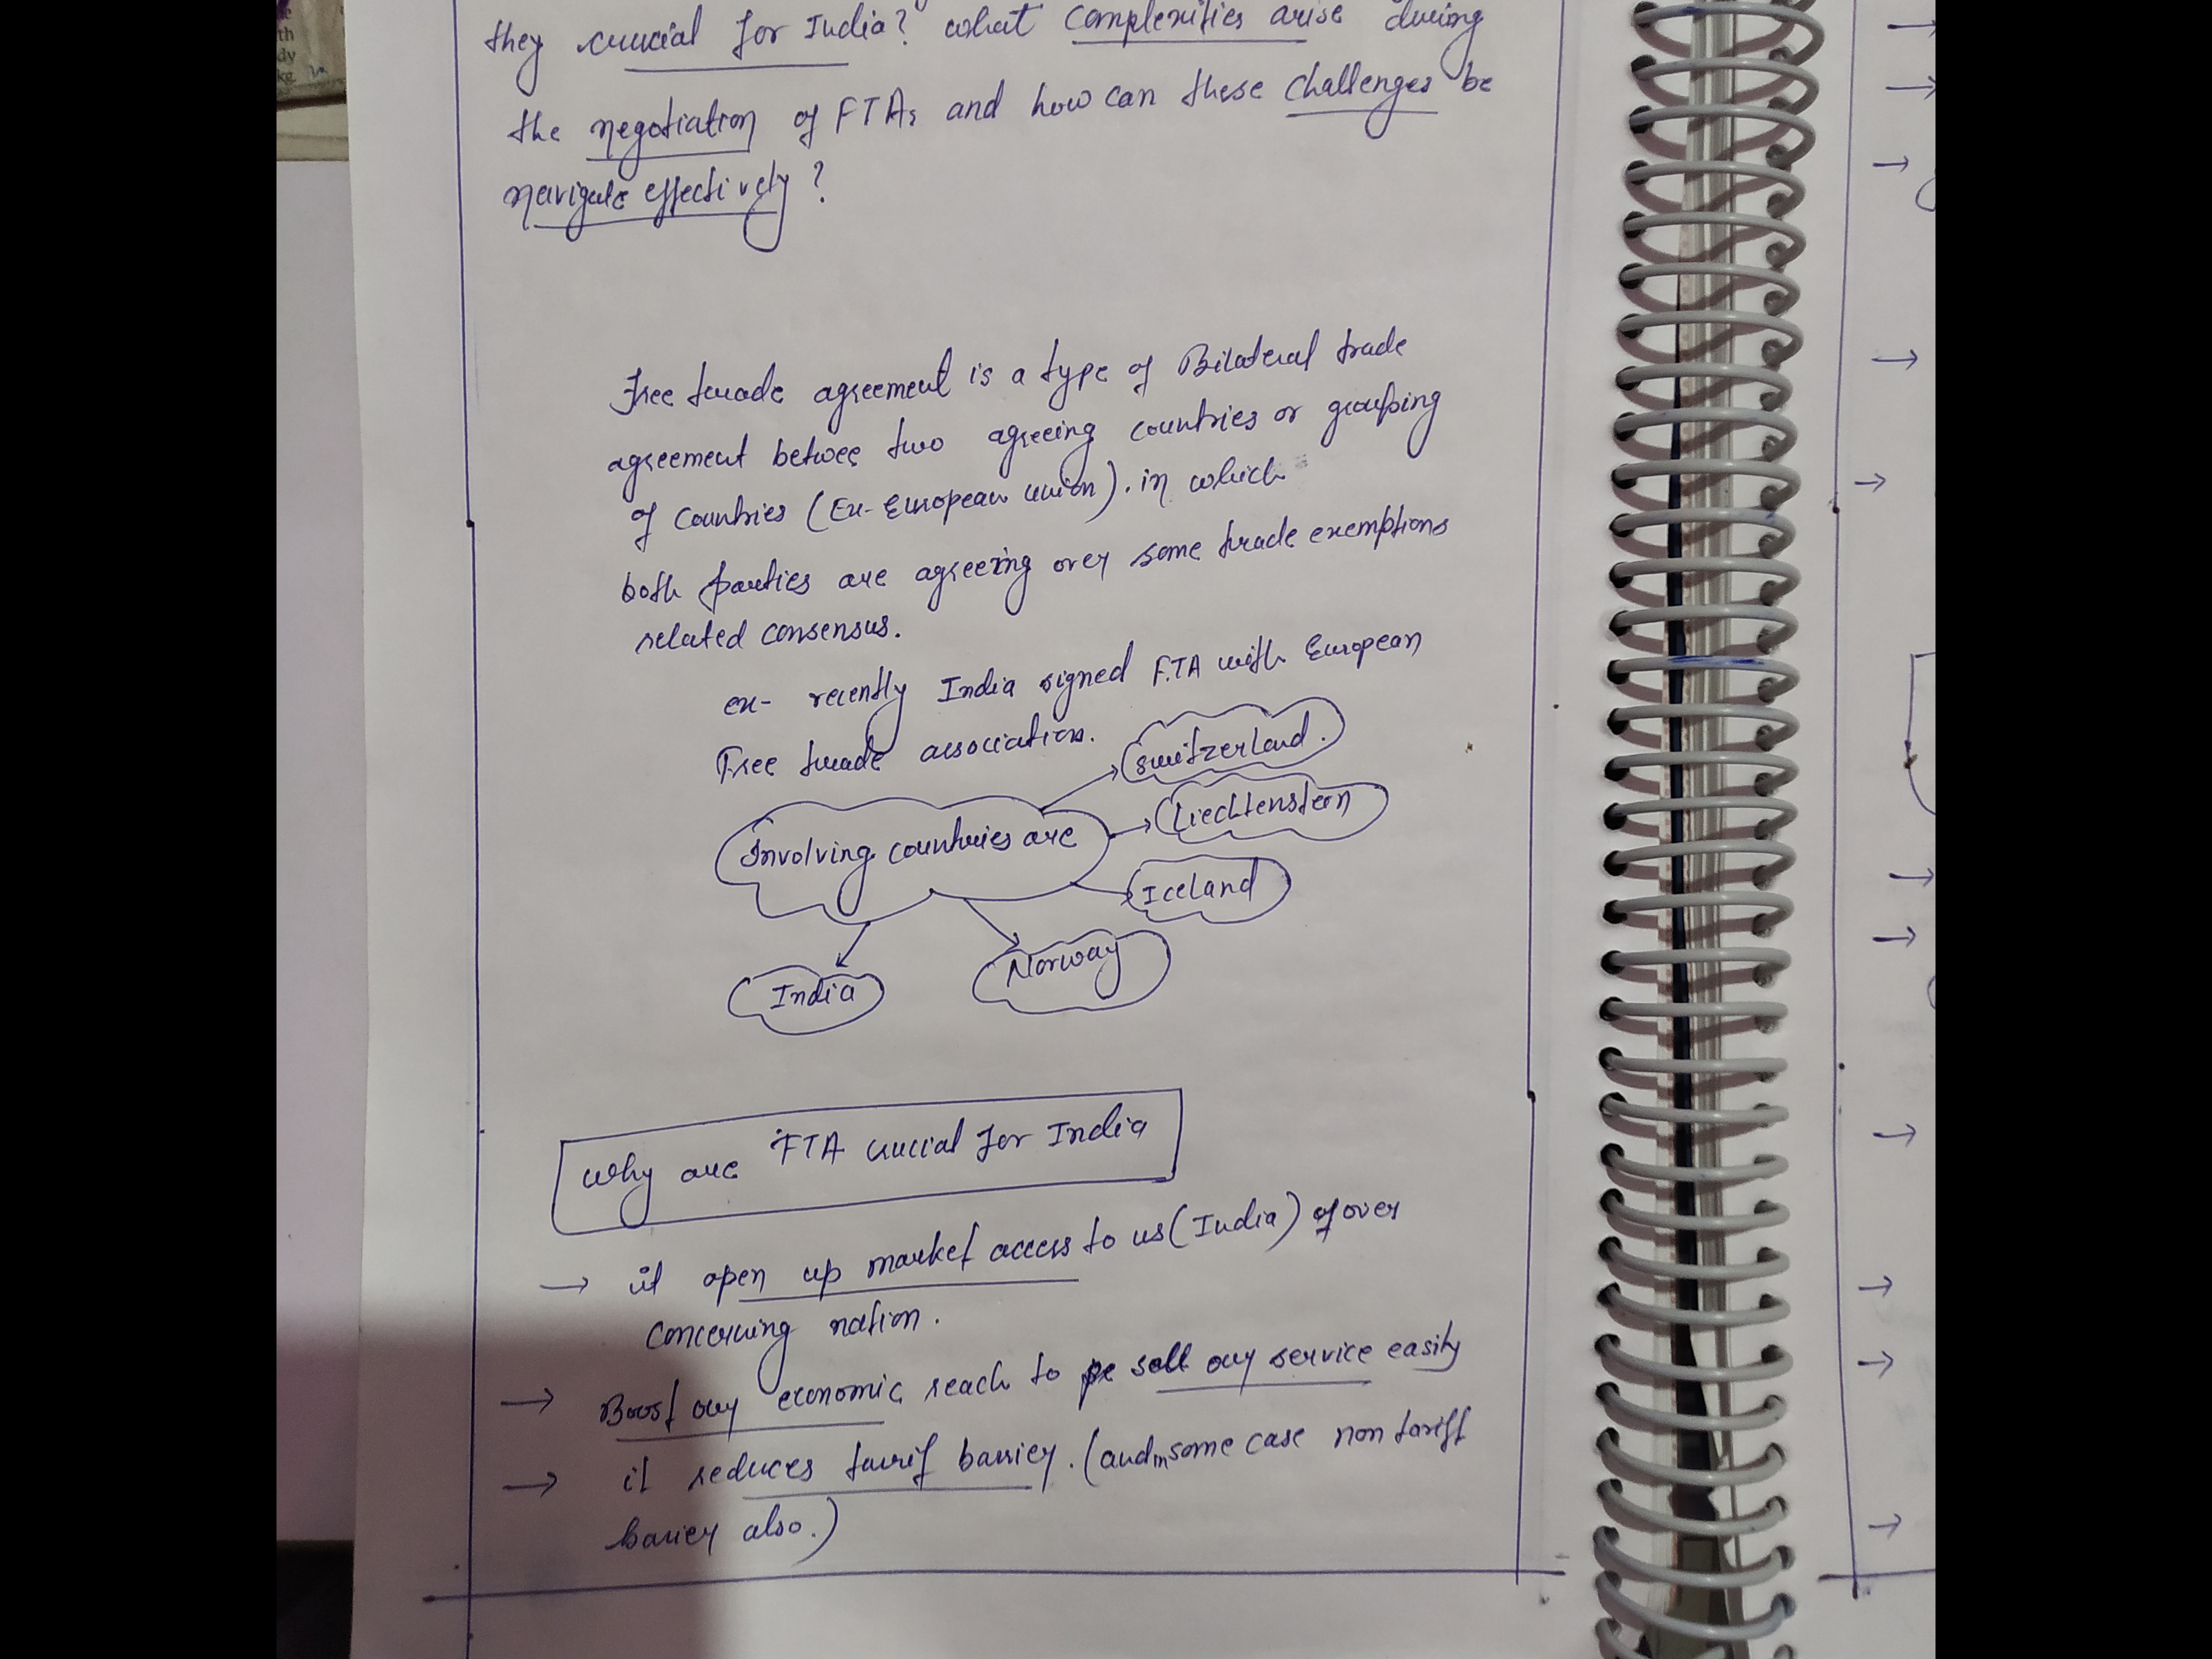 th
dy
kg
they crucial for India? what complexities arise during
the negotiation of FTAs and how can these challenges be
navigate effectively?
Free trade agreement is a type of Bilateral trade
agreement betwee two agreeing countries or grouping
of countries (Ex- European union). in which
both parties are agreeing over some trade exemptions
related consensus.
ex- recently India signed F.TA with European
Free trade association.
Switzerland.
Involving countries are
Liechtenstein
Iceland
Norway
India
Why are FTA crucial for India
→ it open up market access to us (India) of over
concerning nation.
→ Boost our economic reach to sell our service easily
→ it reduces tarrif barrier. (and in some case non tariff
barier also.)